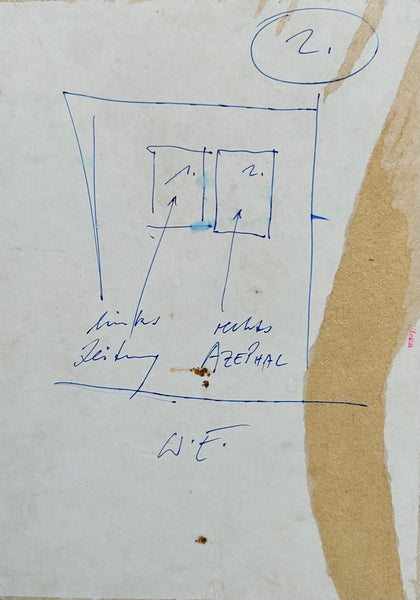 2.
1. 2.
links rechts
Zeitung AZEPHAL
W.E.